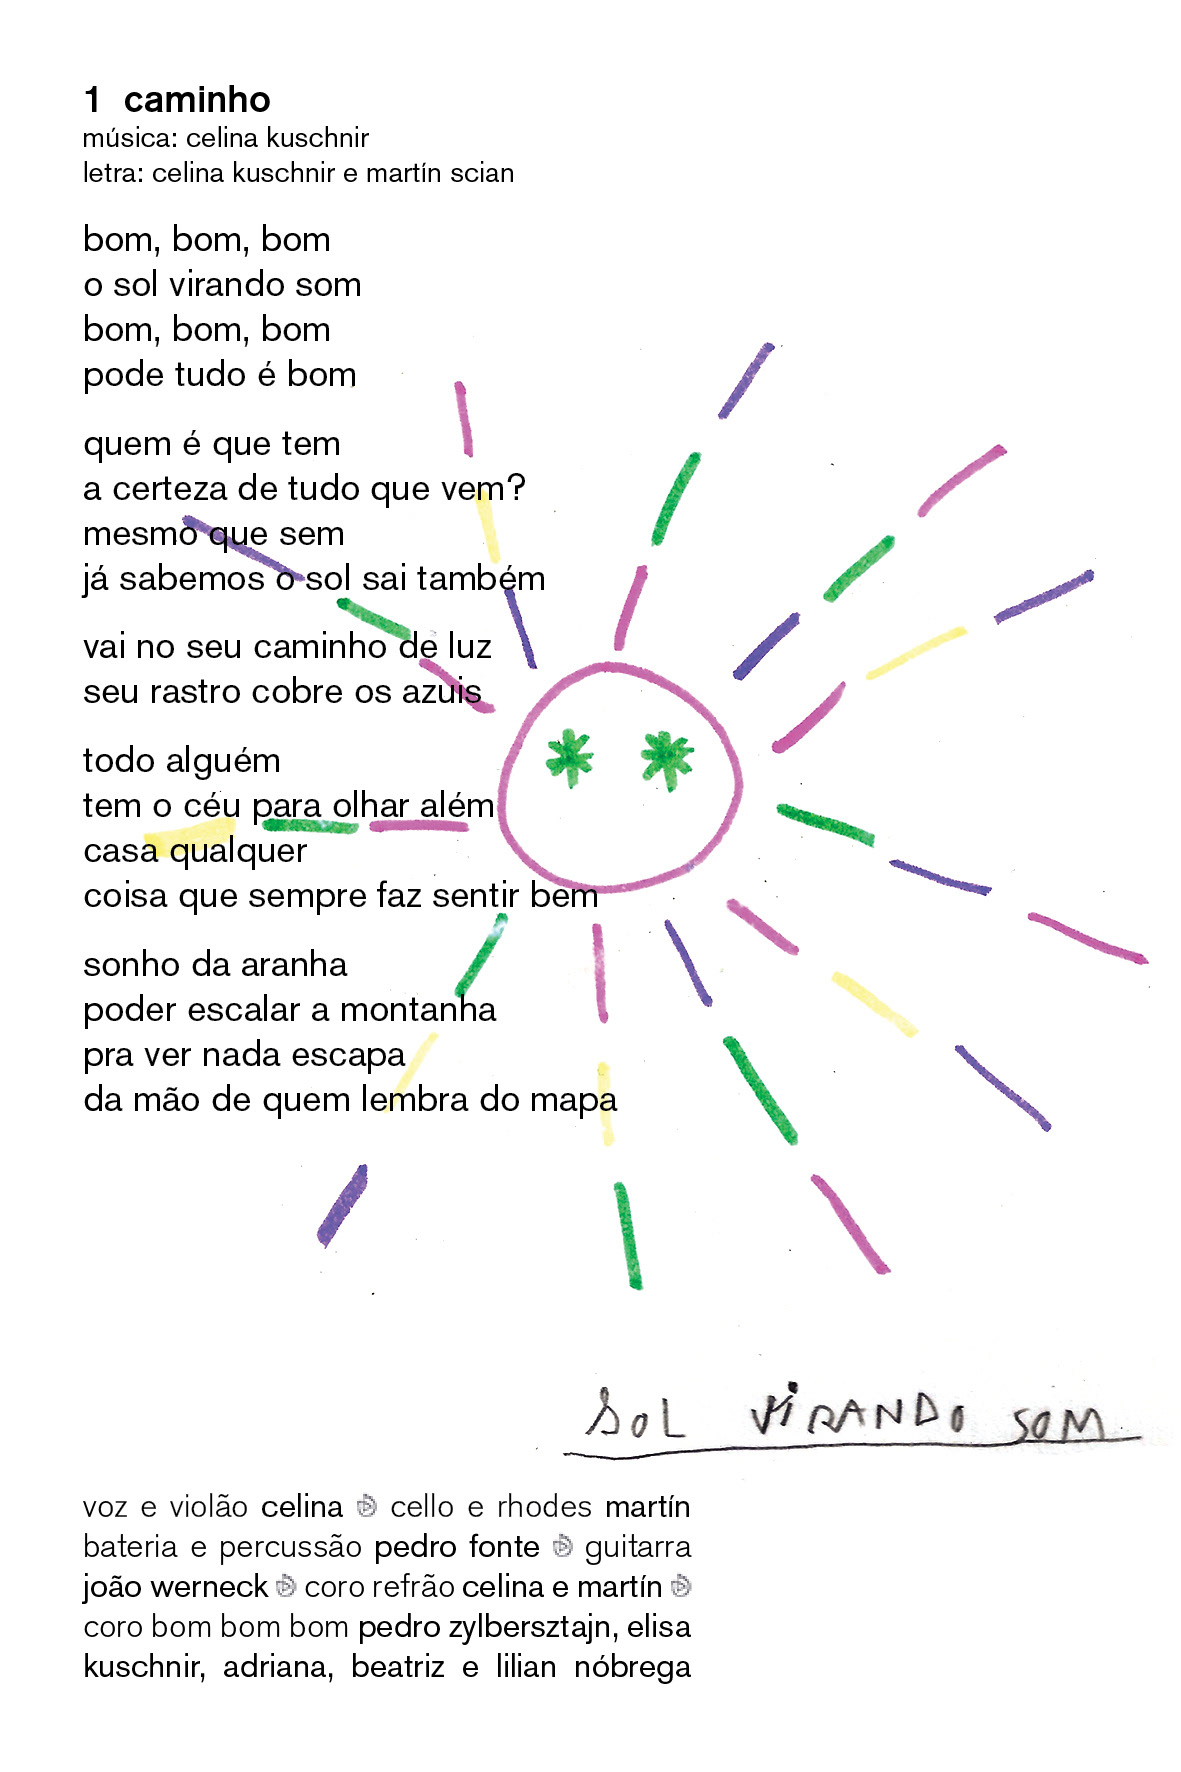 1 caminho
música: celina kuschnir
letra: celina kuschnir e martín scian
bom, bom, bom
o sol virando som
bom, bom, bom
pode tudo é bom
quem é que tem
a certeza de tudo que vem?
mesmo que sem
já sabemos o sol sai também
vai no seu caminho de luz
seu rastro cobre os azuis
todo alguém
tem o céu para olhar além
casa qualquer
coisa que sempre faz sentir bem
sonho da aranha
poder escalar a montanha
pra ver nada escapa
da mão de quem lembra do mapa
SOL VIRANDO SOM
voz e violão celina cello e rhodes martín
bateria e percussão pedro fonte guitarra
joão werneck coro refrão celina e martín
coro bom bom bom pedro zylbersztajn, elisa
kuschnir, adriana, beatriz e lilian nóbrega